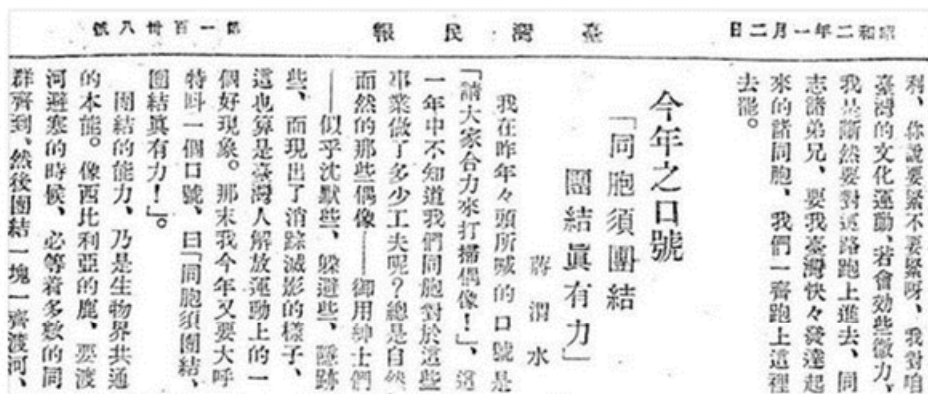 昭和二年一月二日
臺灣民報
第一百卅八號
利、你說要緊不要緊呀、我對咱
臺灣的文化運動、若會効些微力、
我是斷然要對這路跑上進去、同
志諸弟兄、要我臺灣快々發達起
來的諸同胞、我們一齊跑上這裡
去罷。
今年之口號
「同胞須團結
團結眞有力」
蔣渭水
我在昨年々頭所喊的口號是
「請大家合力來打掃偶像!」、這
一年中不知道我們同胞對於這些
事業做了多少工夫呢?總是自然
而然的那些偶像——御用紳士們
——似乎沈默些、躲避些、隱跡
些、而現出了消踪滅影的樣子、
這也算是臺灣人解放運動上的一
個好現象。那末我今年又要大呼
特呌一個口號、曰「同胞須團結、
團結眞有力!」。
團結的能力、乃是生物界共通
的本能。像西比利亞的鹿、要渡
河避寒的時候、必等着多數的同
群齊到、然後團結一塊一齊渡河、